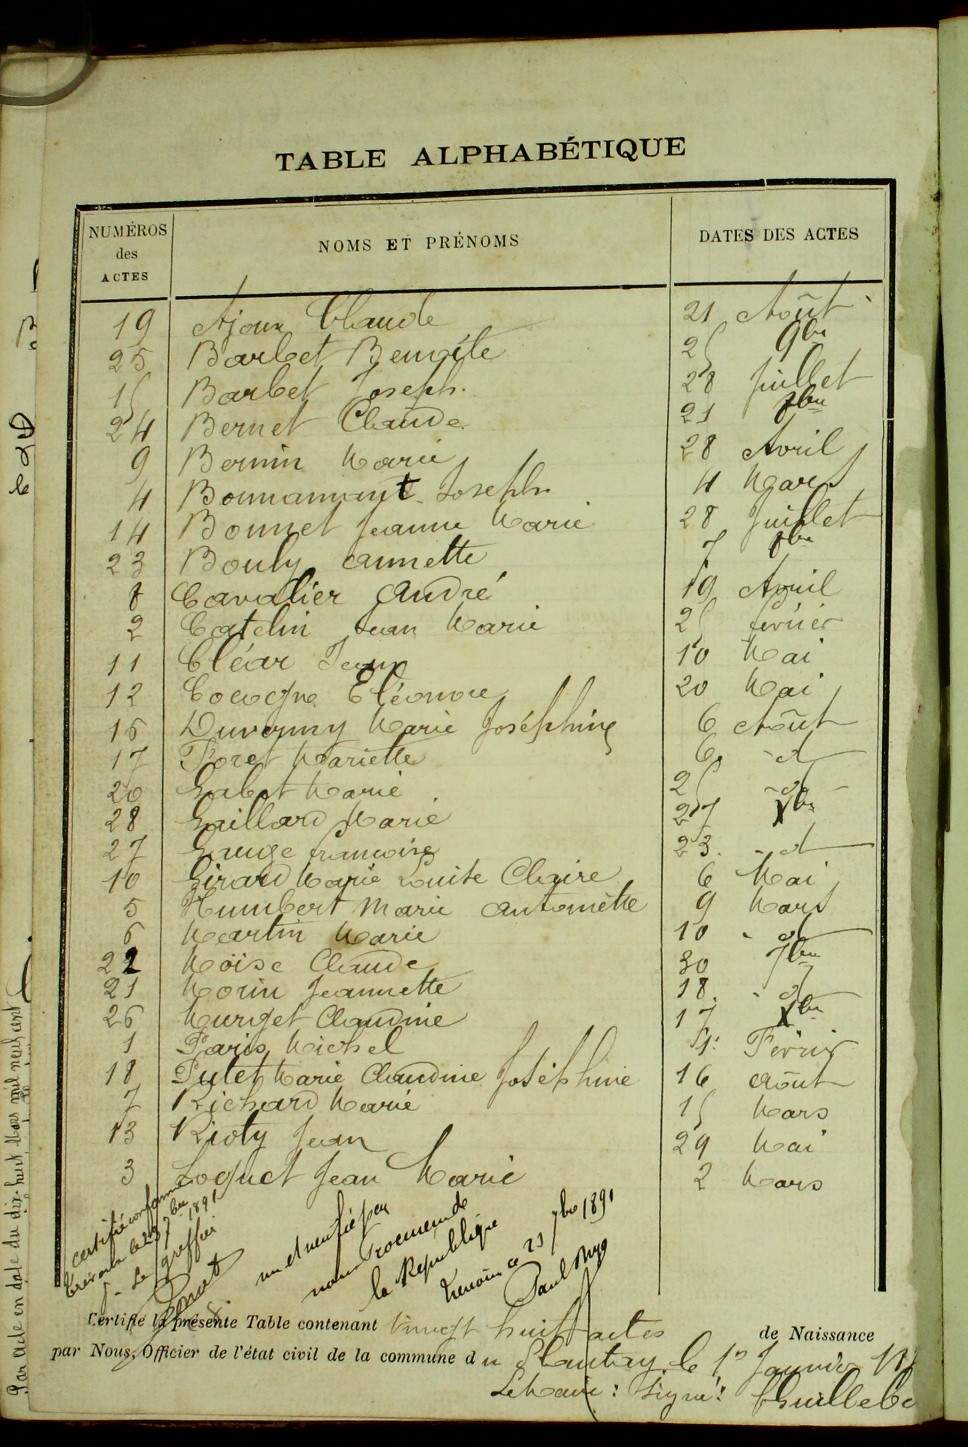 TABLE ALPHABÉTIQUE
NUMÉROS des ACTES NOMS ET PRÉNOMS DATES DES ACTES
19 Ajoux Claude 21 Août
25 Barbet Benoîte 25 9bre
15 Barbet Joseph 28 Juillet
24 Bernet Claude 21 8bre
9 Bernin Marie 28 Avril
4 Bonnamant Joseph 4 Mars
14 Bonnet Jeanne Marie 28 Juillet
23 Bouly Annette 7 8bre
8 Cavalier André 19 Avril
2 Catelin Jean Marie 25 février
11 Cléar Jean 10 Mai
12 Eléonore 20 Mai
16 Marie Joséphine 6 Août
17 Foret Mariette 6 d
20 Galet Marie 25 d
28 Gaillard Marie 27 Xbre
27 Gauge françoise 23 d
10 Girard Marie Louise Claire 6 Mai
5 Humbert Marie Antoinette 9 Mars
6 Martin Marie 10 d
22 Moïse Claude 30 7bre
21 Morin Jeannette 18 d
26 Murget Claudine 17 Xbre
1 Paris Michel Février
18 Putet Marie Claudine Joséphine 16 Août
7 Richard Marie 15 Mars
13 Rioty Jean 29 Mai
3 Loquet Jean Marie 2 Mars
certifié conforme
Trévoux le 23 7bre 1891
Le greffier
vu et vérifié par
nous Procureur de
la République
Trévoux ce 23 7bre 1891
Paul
Certifié la présente Table contenant vingt huit actes de Naissance
par Nous, Officier de l'état civil de la commune du Plantay le 1er Janvier
Le Maire: Signé:
Par acte en date du dix-huit Mars mil neuf cent